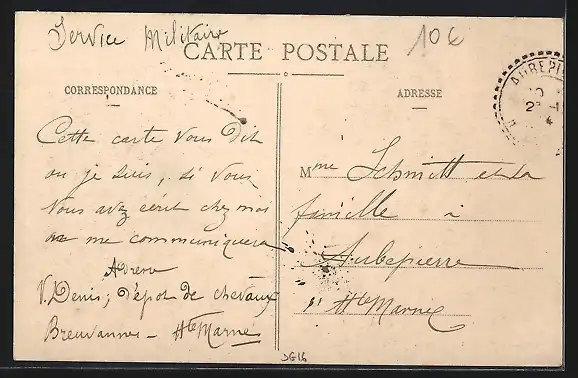 Service Militaire
CARTE POSTALE
10€
CORRESPONDANCE
ADRESSE
AUBEPI
Cette carte vous dit
ou je suis, si vous
vous avez ecrit chez moi
on me communiquera
V. Denis, dépot de chevaux
Breuvannes - Hte Marne
Mme Schmitt et sa
famille à
Aubepierre
Hte Marne